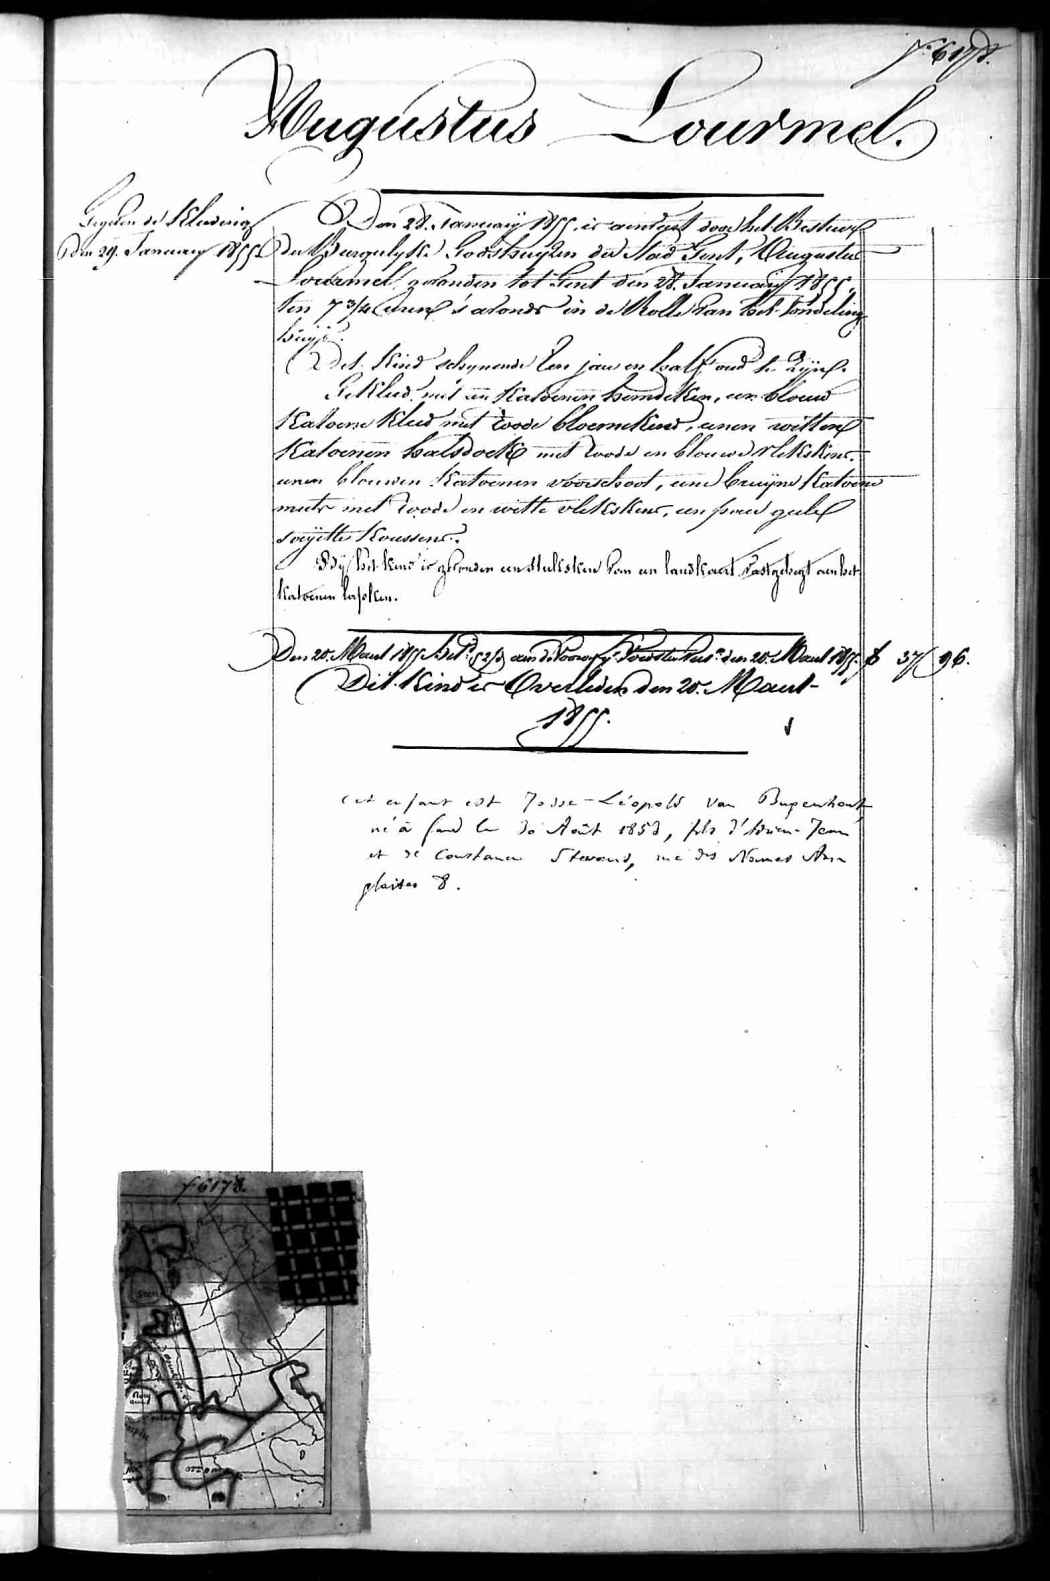 Nº 6178.
Augustus Lourmel.
Gegeven de Kleeding
den 29. January 1855
Den 28. January 1855. is aenveert door het Bestuer
der Burgerlyke Godshuyzen der Stad Gent, Augustus
Lourmel, gevonden tot Gent den 28. January 1855.
ten 7 3/4 uren 's avonds in de Rolle van het vondeling
huys.
Dit kind schynende een jaer en half oud te zyn.
Gekleed met een katoenen hemdeken, een blouw
katoene kleed met roode bloemekens, eenen witten
katoenen halsdoek met roode en blouwe vlekskens.
eenen blouwen katoenen voorschoot, eene bruyne katoene
muts met roode en witte vlekskens, een paer gele
soeyette koussens.
By het kind is gevonden een stuksken van een landkaert vastgehegt aen het
katoenen lapken.
Den 20. Maert 1855. aen de Voorzorg den 20. Maert 1855. 37 96.
Dit Kind is Overleden den 20. Maert
1855.
Cet enfant est Josse-Léopold Van Bugenhout,
né à Gand le 30 Août 1853, fils d'Adrien-Jean
et de Constance Stevens, rue des Nonnes
8.
Nº 6178.